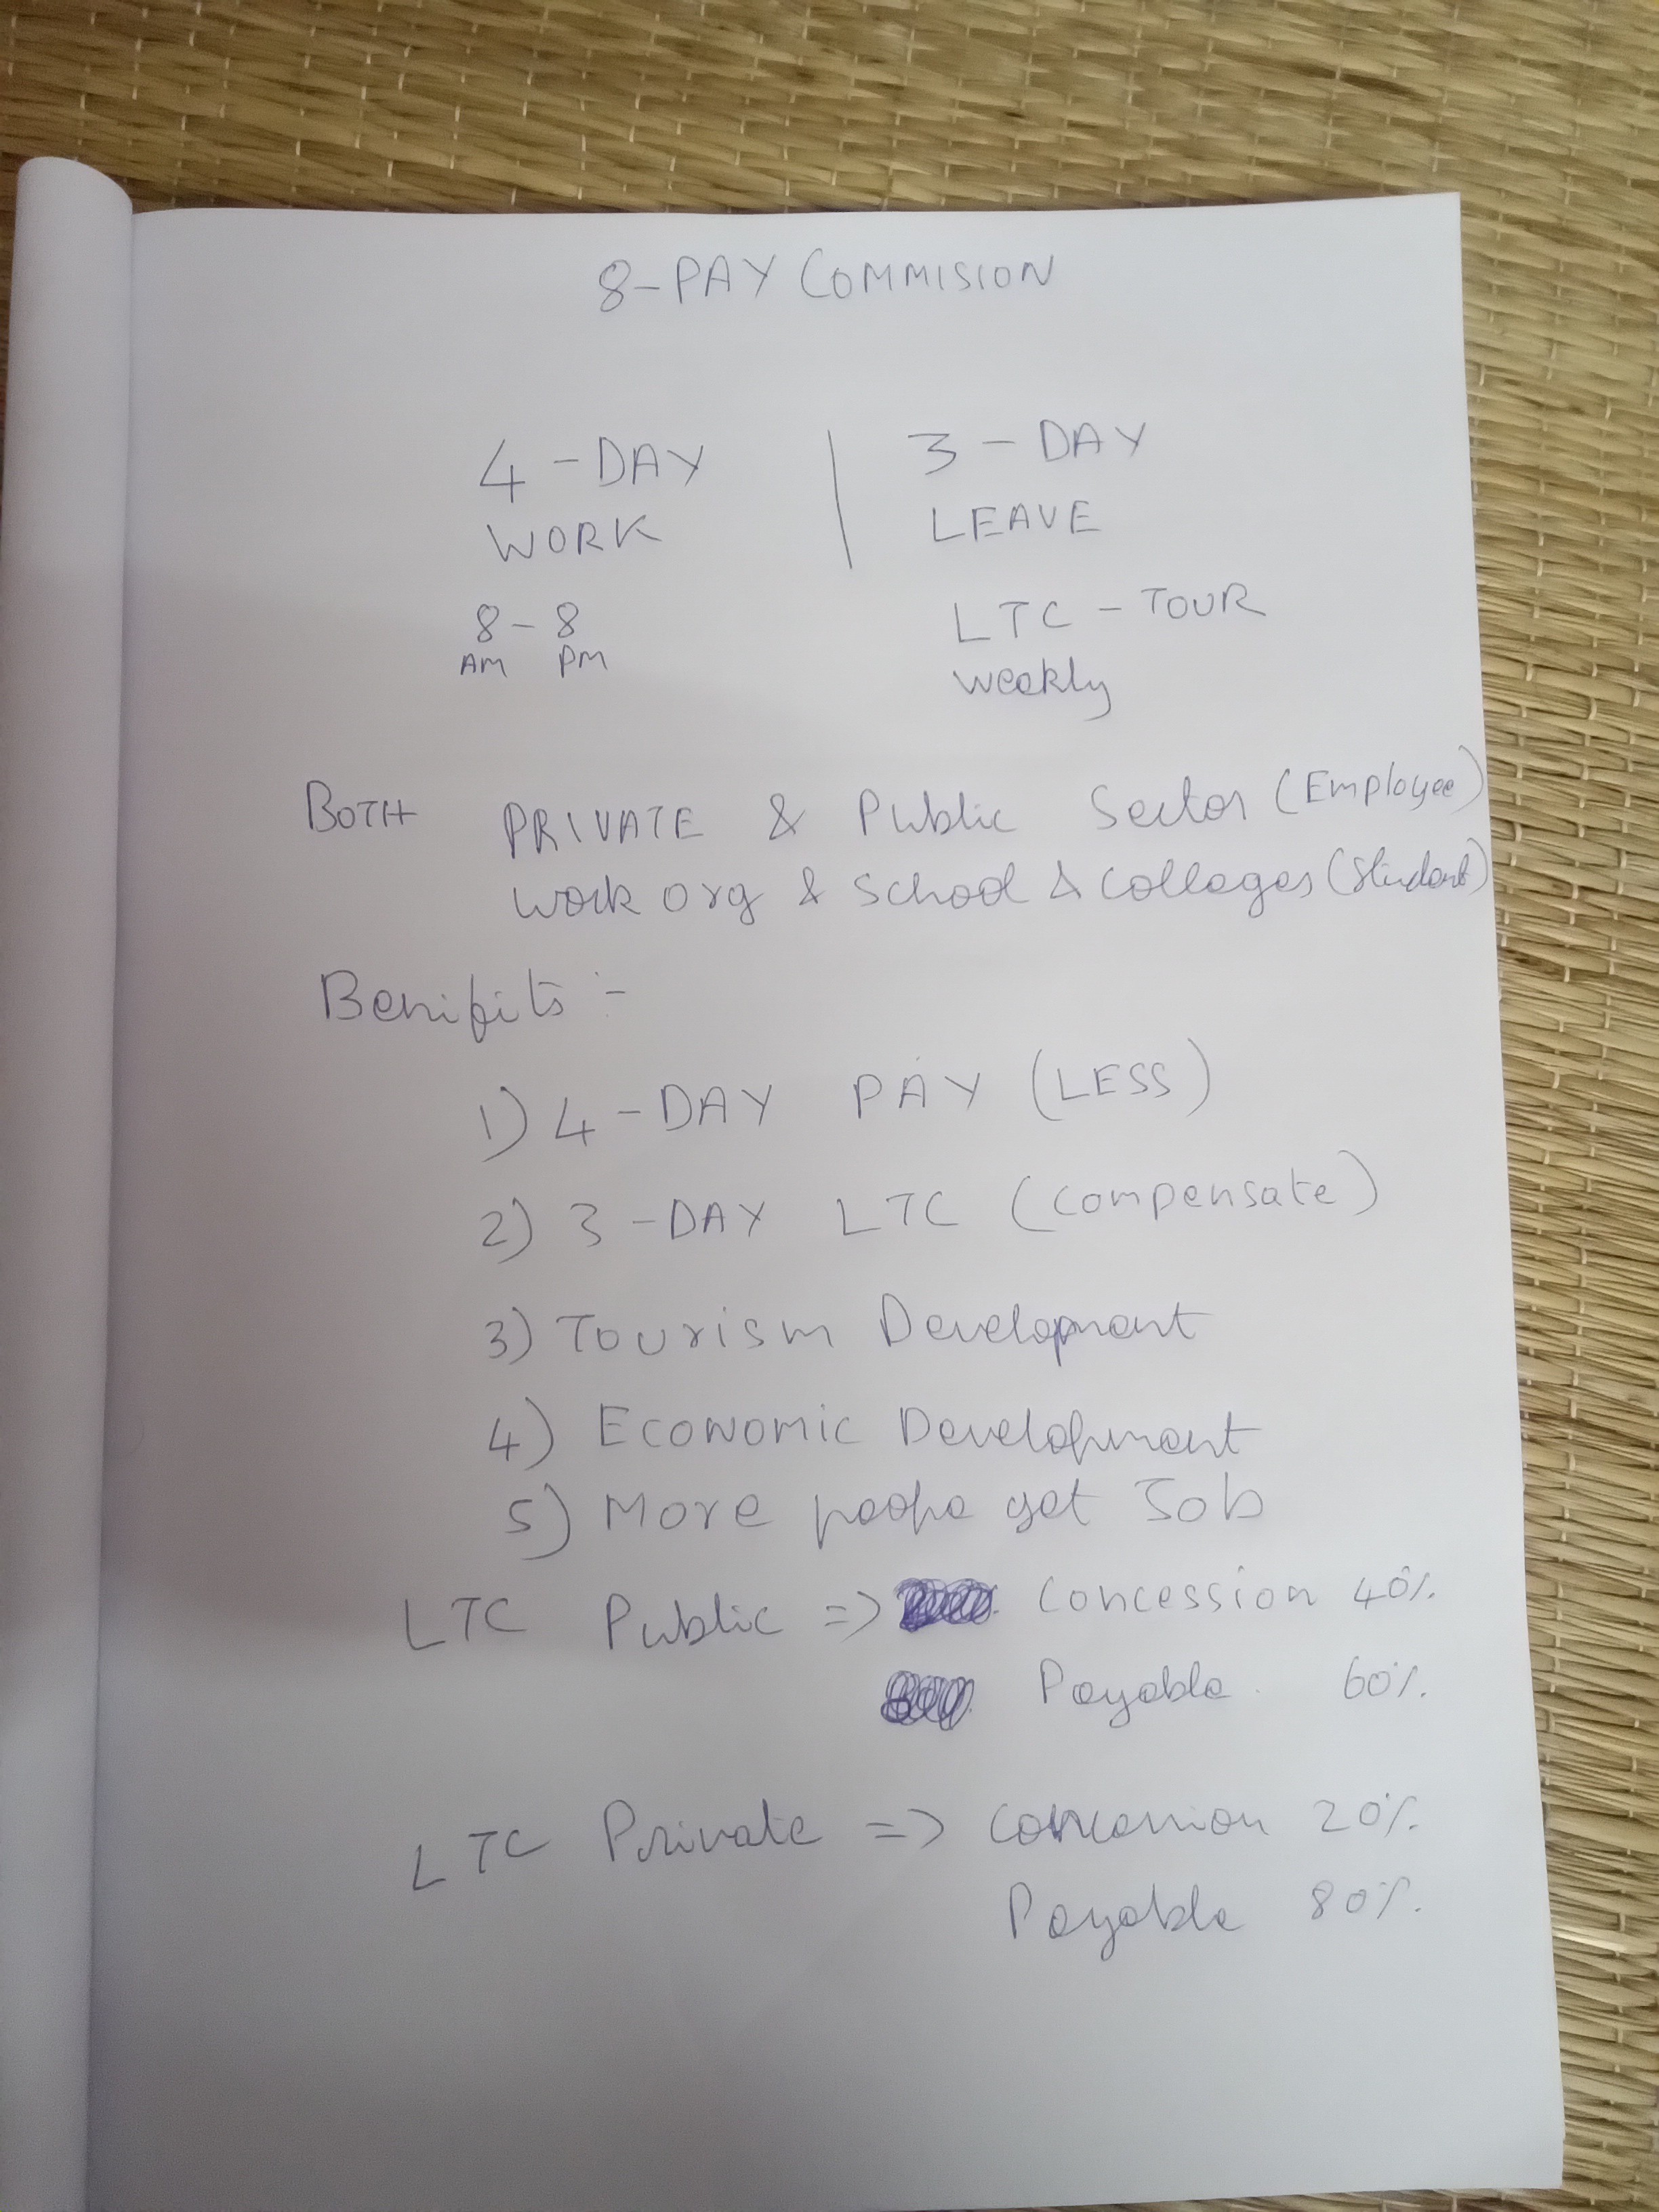 8-PAY COMMISION
4-DAY | 3-DAY
WORK LEAVE
8-8 LTC-TOUR
AM PM weekly
BOTH PRIVATE & Public Sector (Employee)
work org & School & Colleges (Student)
Benifits :-
1) 4-DAY PAY (LESS)
2) 3-DAY LTC (compensate)
3) Tourism Development
4) Economic Development
5) More peope get Job
LTC Public => Concession 40%.
Payable 60%.
LTC Private => Concession 20%.
Payable 80%.